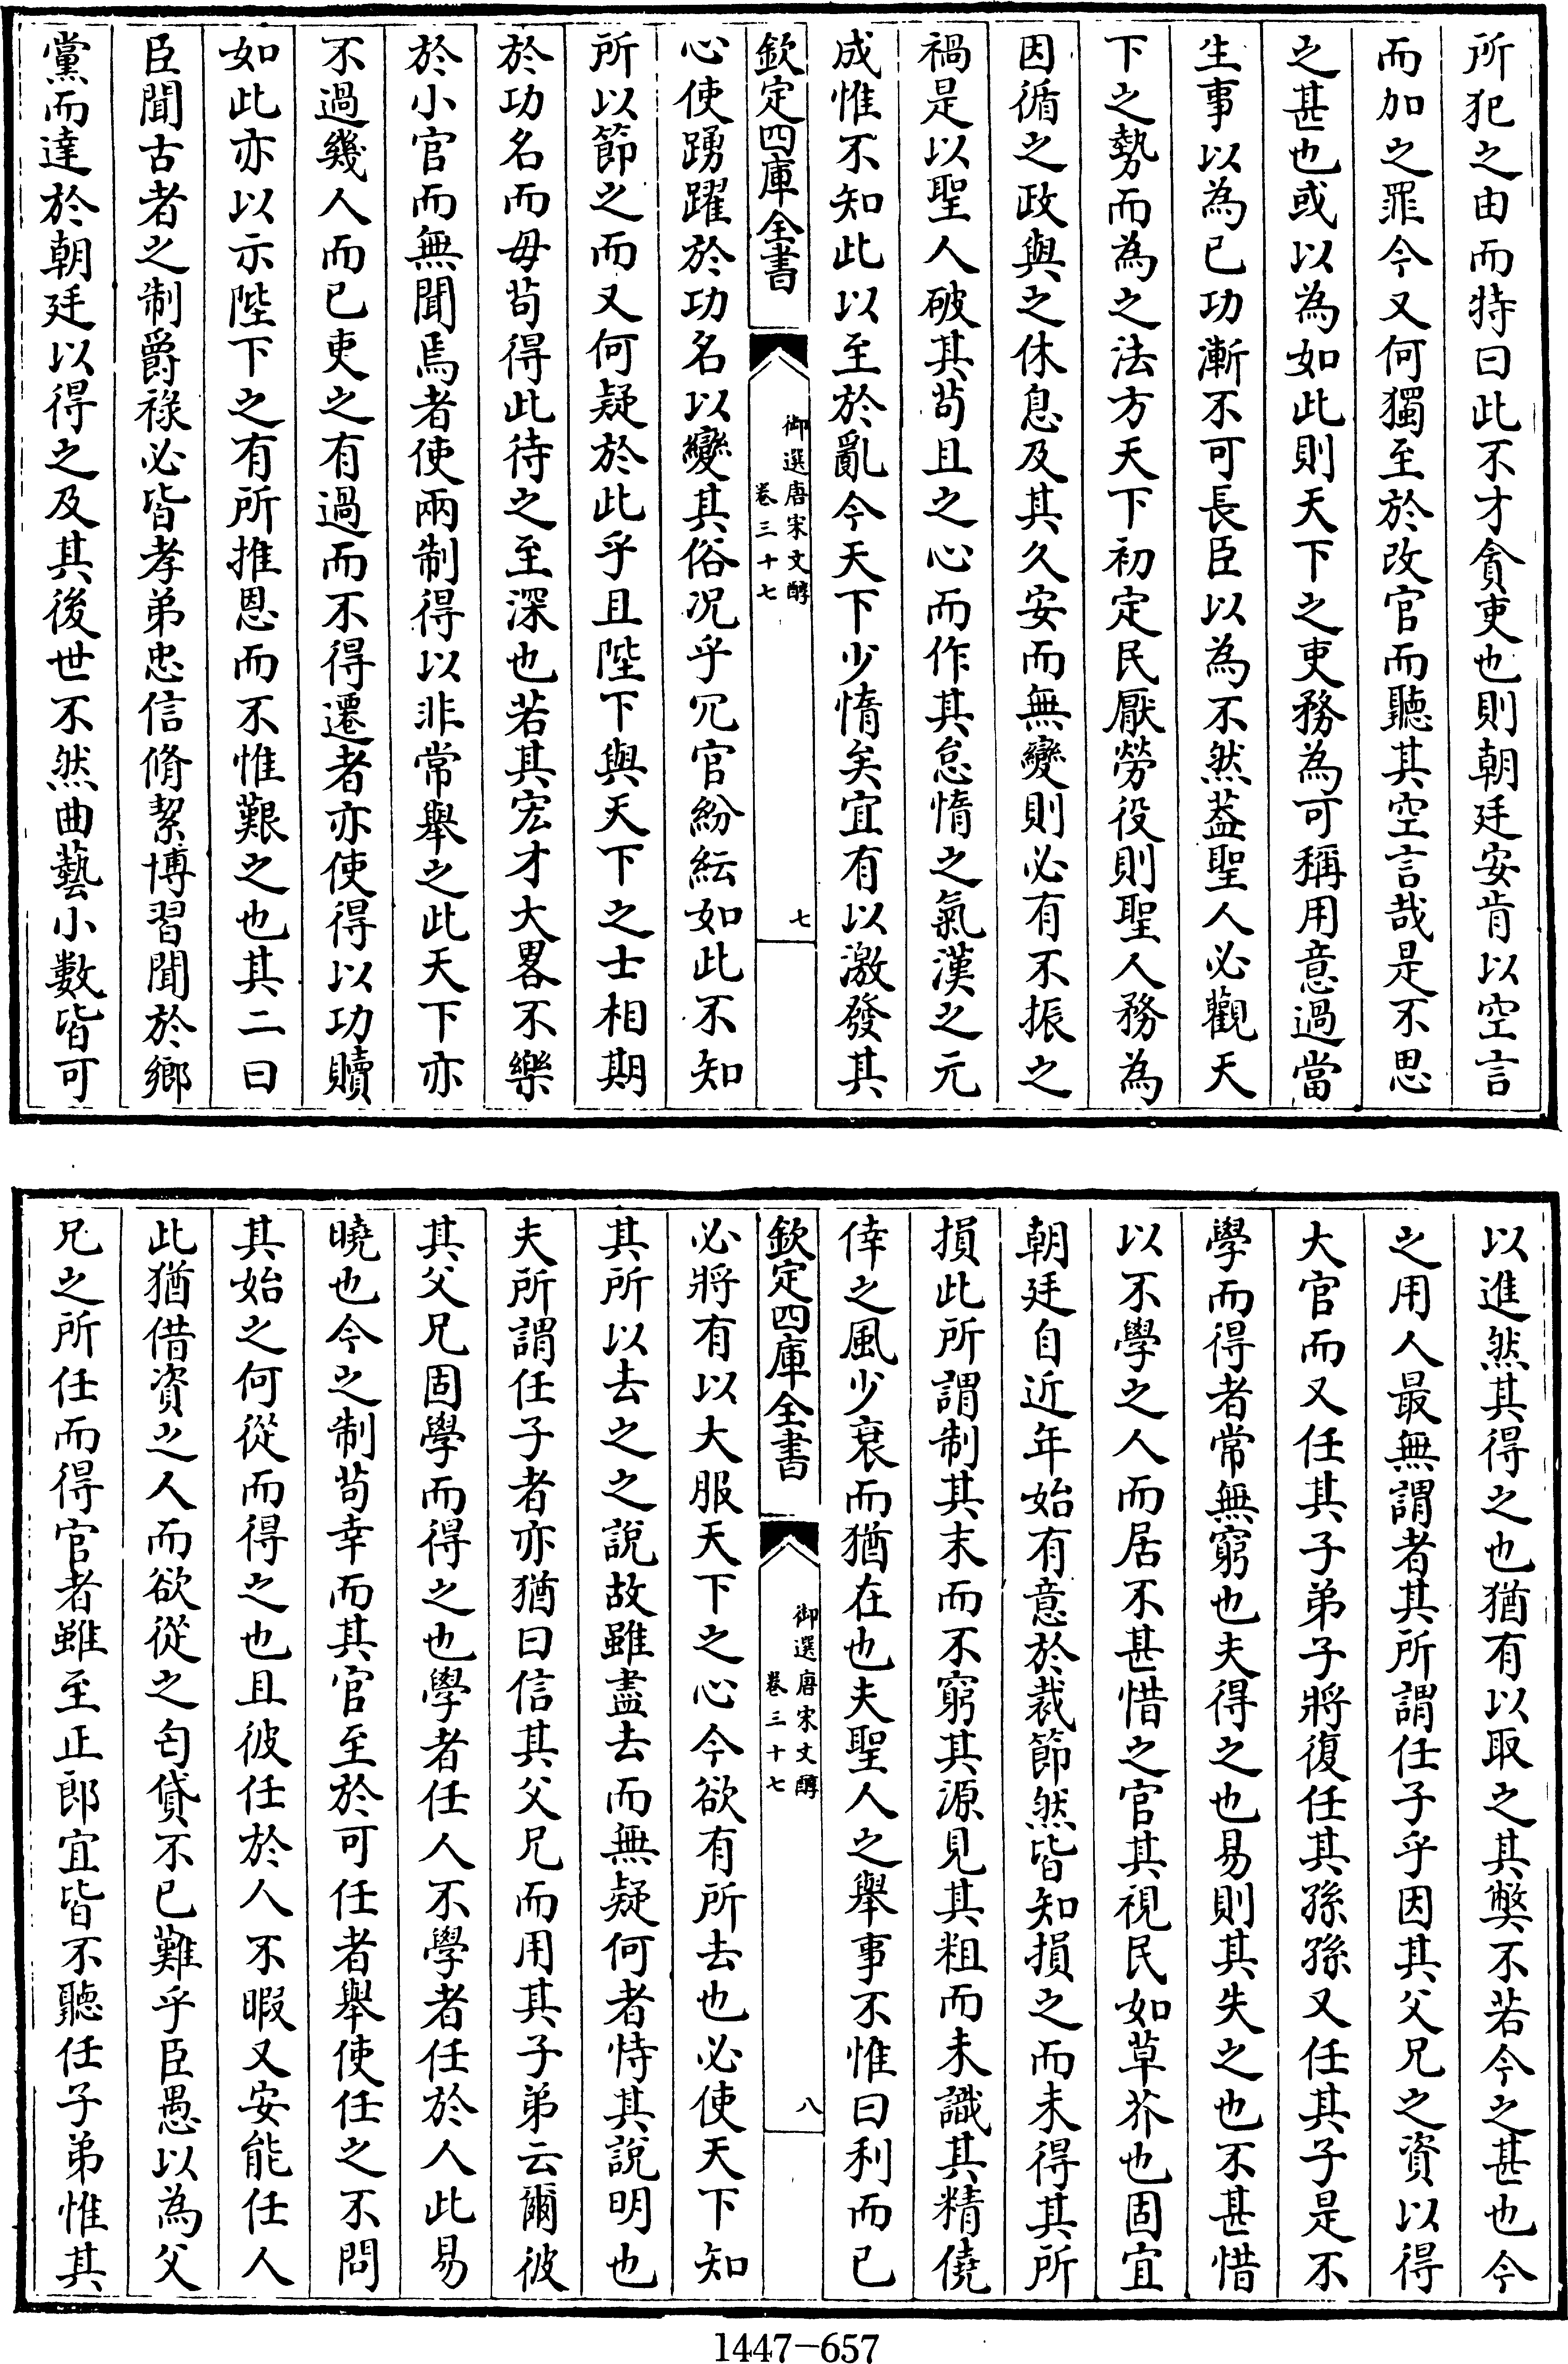 所犯之由而特曰此不才貪吏也則朝廷安肯以空言
而加之罪今又何獨至於改官而聽其空言哉是不思
之甚也或以為如此則天下之吏務為可稱用意過當
生事以為已功漸不可長臣以為不然葢聖人必觀天
下之勢而為之法方天下初定民厭勞役則聖人務為
因循之政與之休息及其久安而無變則必有不振之
禍是以聖人破其苟且之心而作其怠惰之氣漢之元
成惟不知此以至於亂今天下少惰矣宜有以激發其
欽定四庫全書
御選唐宋文醇
卷三十七
七
心使踴躍於功名以變其俗况乎冗官紛紜如此不知
所以節之而又何疑於此乎且陛下與天下之士相期
於功名而毋苟得此待之至深也若其宏才大畧不樂
於小官而無聞焉者使兩制得以非常舉之此天下亦
不過幾人而已吏之有過而不得遷者亦使得以功贖
如此亦以示陛下之有所推恩而不惟艱之也其二曰
臣聞古者之制爵祿必皆孝弟忠信脩絜博習聞於鄉
黨而達於朝廷以得之及其後世不然曲藝小數皆可
以進然其得之也猶有以取之其弊不若今之甚也今
之用人最無謂者其所謂任子乎因其父兄之資以得
大官而又任其子弟子將復任其孫孫又任其子是不
學而得者常無窮也夫得之也易則其失之也不甚惜
以不學之人而居不甚惜之官其視民如草芥也固宜
朝廷自近年始有意於裁節然皆知損之而未得其所
損此所謂制其末而不窮其源見其粗而未識其精僥
倖之風少衰而猶在也夫聖人之舉事不惟曰利而已
欽定四庫全書
御選唐宋文醇
卷三十七
八
必將有以大服天下之心今欲有所去也必使天下知
其所以去之之說故雖盡去而無疑何者恃其說明也
夫所謂任子者亦猶曰信其父兄而用其子弟云爾彼
其父兄固學而得之也學者任人不學者任於人此易
曉也今之制苟幸而其官至於可任者舉使任之不問
其始之何從而得之也且彼任於人不暇又安能任人
此猶借資之人而欲從之匄貸不已難乎臣愚以為父
兄之所任而得官者雖至正郎宜皆不聽任子弟惟其
1447-657